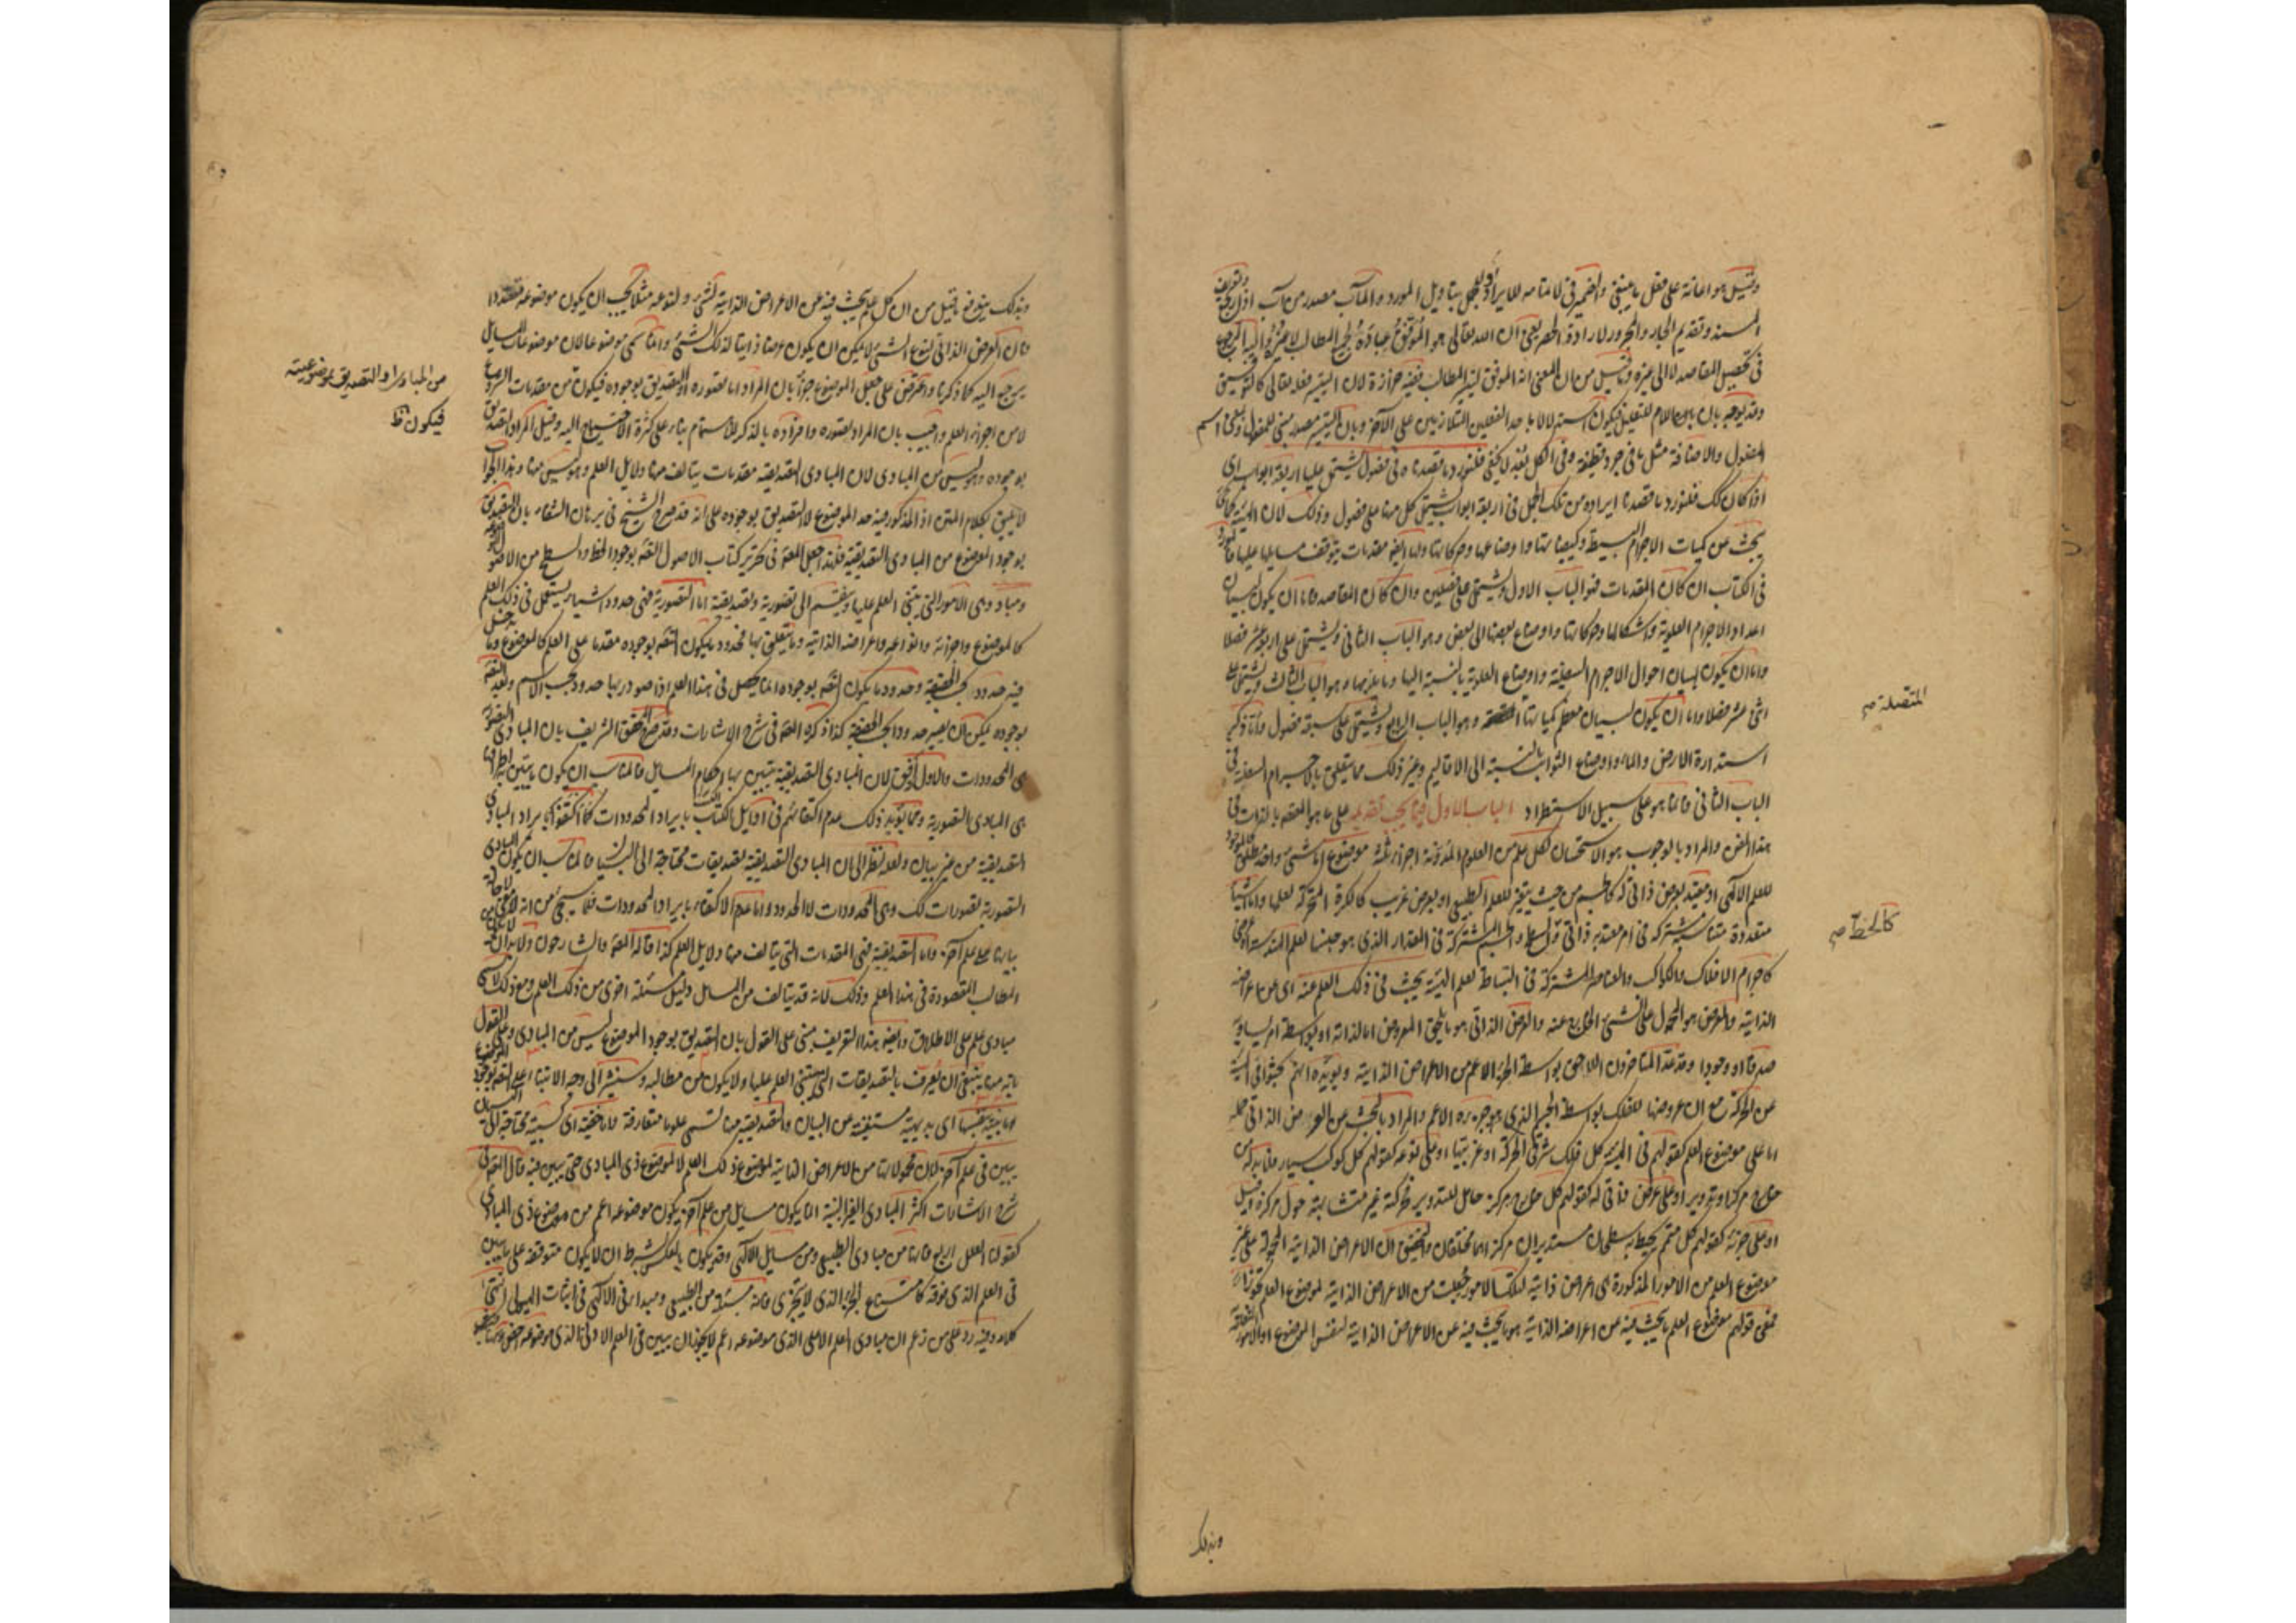 وقيل هو اعانة على فعل ما ينبغي والضمير في
المسند وتقديم الجار والمجرور لارادة الحصر يعني ان الله تعالى هو الموفق عباده لجميع المطالب لا غيره واليه المرجع
في تحصيل المقاصد لا الى غيره وما قيل من ان المعنى انه الموفق ليتيسر المطالب ففيه حزازة لان التيسير فعله تعالى كالتوفيق
وقد يوجه بان اللام للتعليل فيكون استدلالا باحد الفعلين المتلازمين على الآخر وبان التيسير مصدر مبني للمفعول
المفعول والاضافة مثل ما في جرد قطيفة وفي الكل بعد لا يخفى فلنورد ما قصدناه في فصول يشتمل عليها اربعة ابواب اي
اذا كان كذلك فلنورد ما قصدنا ايراده من تلك الجمل في اربعة ابواب يشتمل كل منها على فصول وذلك لان الهيئة
يبحث عن كميات الاجرام البسيطة وكيفياتها واوضاعها وحركاتها ولها ايضا مقدمات يتوقف مسايلها عليها
في الكتاب ان كان المقدمات فهو الباب الاول ويشتمل على فصلين وان كان المقاصد فاما ان يكون لبيان
اعداد الاجرام العلوية واشكالها وحركاتها واوضاع بعضها الى بعض وهو الباب الثاني ويشتمل على اربعة عشر فصلا
واما ان يكون لبيان احوال الاجرام السفلية واوضاع العلوية بالنسبة اليها وما يلزمها وهو الباب الثالث ويشتمل على
اثنى عشر فصلا واما ان يكون لبيان معظم كمياتها وهو الباب الرابع ويشتمل على سبعة فصول واما ذكر
استدارة الارض والماء واوضاع الثوابت بالنسبة الى الاقاليم وغير ذلك مما يتعلق بالاجرام السفلية في
الباب الثاني فانما هو على سبيل الاستطراد الباب الاول فيما يجب تقديمه على ما هو المقصد بالذات في
هذا الفن والمراد بالوجوب هو الاستحسان لكل علم من العلوم المدونة اجزاء ثلثة موضوع اما شيء واحد مطلق
للعلم الالهي او مقيد بعرض ذاتي له كالجسم من حيث يتغير للعلم الطبيعي او بعرض غريب كالكرة المتحركة لعلمها واما اشياء
متعددة متناسبة مشتركة في امر معتد به ذاتي والجسم المشتركة في المقدار الذي هو جنسها لعلم الهندسة او عرضي
كاجرام الافلاك والكواكب والعناصر المشتركة في البساطة لعلم الهيئة يبحث في ذلك العلم عنه اي عن اعراضه
الذاتية والعرض هو المحمول على الشيء الخارج عنه والعرض الذاتي هو ما يلحق المعروض اما لذاته او بواسطة امر يساويه
صدقا او وجودا وقد عد المتاخرون اللاحق بواسطة الجزء الاعم من الاعراض الذاتية ويؤيده انهم يبحثوا في الهيئة
عن الحركة مع ان عروضها للفلك بواسطة الجسم الذي هو جزءه الاعم والمراد بالبحث عن العرض الذاتي حمله
اما على موضوع العلم كقولهم في الهيئة كل فلك شرقي الحركة او غربيتها او على نوعه كقولهم كل كوكب سيار فانه له
خارج مركز او تدوير او على عرض ذاتي له كقولهم كل خارج مركز حامل للتدوير فحركته غير متشابهة حول مركزه
او على جزئه كقولهم كل متمم يحيط به سطحان مستديران مركزاهما مختلفان والتحقيق ان الاعراض الذاتية المحمولة على غير
موضوع العلم من الامور المذكورة هي اعراض ذاتية لتلك الامور جعلت من الاعراض الذاتية لموضوع العلم تجوزا
فمعنى قولهم موضوع العلم ما يبحث فيه عن اعراضه الذاتية هو ما يبحث فيه عن الاعراض الذاتية لنفس الموضوع او
المتصلة صح
كالخط صح
وبذلك
وبذلك يندفع ما قيل من ان كل علم يبحث فيه عن الاعراض الذاتية لشيء ولنوعه مثلا يجب ان يكون موضوعه متعددا
فان العرض الذاتي لنوع الشيء لا يمكن ان يكون عرضا ذاتيا لذلك الشيء وانما سمي موضوعا لان موضوعات المسايل
يرجع اليه كما ذكرنا واعترض على جعل الموضوع جزءا بان المراد اما تصوره او التصديق بوجوده فيكون من مقدمات الشروع
لا من اجزاء العلم واجيب بان المراد تصوره وافراده بالذكر للاهتمام بناء على كثرة الاحتياج اليه وقيل المراد التصديق
بوجوده وهو ليس من المبادى لان المبادى التصديقية مقدمات يتالف منها دلايل العلم وهو ليس منها وهذا الجواب
لا يليق بكلام المتن اذ المذكور فيه حد الموضوع لا التصديق بوجوده على انه قد صرح الشيخ في برهان الشفاء بان التصديق
بوجود الموضوع من المبادى التصديقية فلهذا جعل المصنف في تحرير كتاب الاصول التصديق بوجود الخط والسطح من الاصول
ومباد وهي الامور التي يبتني العلم عليها وينقسم الى تصورية وتصديقية اما التصورية فهي حدود اشياء يستعمل في ذلك العلم
كالموضوع واجزائه وانواعه واعراضه الذاتية وما يتعلق بها فحدود ما يكون التصديق بوجوده مقدما على العلم كالموضوع وما
فيه حدود بحسب الحقيقة وحدود ما يكون التصديق بوجوده انما يحصل في هذا العلم اذا صودر بها حدود بحسب الاسم وبعد التصديق
بوجوده يمكن ان يصير حدودا بحسب الحقيقة كذا ذكره المصنف في شرح الاشارات وقد صرح المحقق الشريف بان المبادى التصورية
هي المحدودات والاول اوفق لان المبادى التصديقية يتبين بها احكام المسايل فالمناسب ان يكون ما يتبين به اطرافها
هي المبادى التصورية ومما يؤيد ذلك عدم اكتفائهم في اوايل الكتاب بايراد المحدودات كما اكتفوا بايراد المبادى
التصديقية من غير بيان ولعله نظر الى ان المبادى التصديقية تصديقات محتاجة الى البيان فالمناسب ان يكون المبادى
التصورية تصورات كذلك وهي المحدودات لا الحدود واما عدم الاكتفاء بايراد المحدودات
بيانها على علم آخر واما التصديقية فهي المقدمات التي يتالف منها دلايل العلم كذا قاله المصنف والشارحون ولا بد ان
المطالب المقصودة في هذا العلم وذلك لانه قد يتالف من المسايل دليل مسئلة اخرى من ذلك العلم ومع ذلك لا يسمى
مبادى علم على الاطلاق وايضا هذا التعريف مبني على القول بان التصديق بوجود الموضوع ليس من المبادى وعلى القول
بانه منها ينبغي ان يعرف بالتصديقات التي يبتني العلم عليها ولا يكون من مطالبه وسنشير الى وجه الابتناء
اما بينة بنفسها اي بديهية مستغنية عن البيان والتصديقية منها تسمى علوما متعارفة او غير بينة محتاجة الى البيان
يبين في علم آخر لان محمولاتها من الاعراض الذاتية لموضوع ذلك العلم لا لموضوع ذي المبادى حتى يبين فيه قال المصنف في
شرح الاشارات اكثر المبادى الغير البينة انما يكون مسايل من علم آخر يكون موضوعه اعم من موضوع ذي المبادى
كقولنا العلل اربع فانها من مبادى الطبيعي ومن مسايل الالهي وقد يكون بالعكس بشرط ان لا يكون متوقفة على ما يبين
في العلم الذي فوقه كامتناع الجزء الذي لا يتجزى فانه مسئلة من الطبيعي ومبدا في الالهي في اثبات الهيولى انتهى
كلامه وفيه رد على من زعم ان مبادى العلم الاعلى الذي موضوعه اعم لا يجوز ان يبين في العلم الادنى الذي موضوعه اخص
من المبادى او التصديق بموضوعيته
فيكون ظ